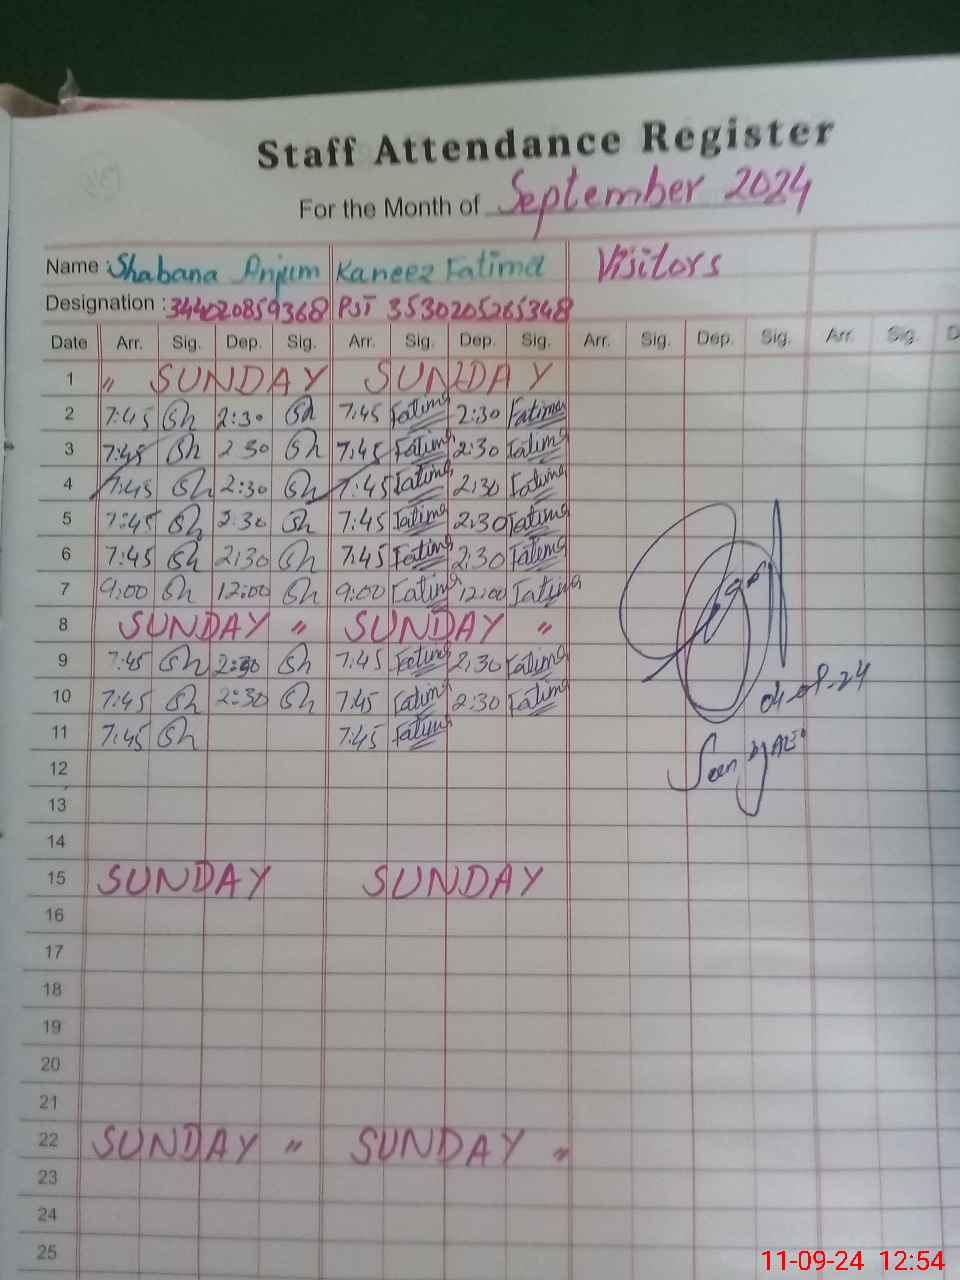 Staff Attendance Register
For the Month of September 2024
Name : Shabana Anjum Kaneez Fatima Visitors
Designation : 344020859368 PST 3530205265348
Date Arr. Sig. Dep. Sig. Arr. Sig. Dep. Sig. Arr. Sig. Dep. Sig. Arr. Sig. D
1 " SUNDAY SUNDAY
2 7:45 Sh 2:30 Sh 7:45 Fatima 2:30 Fatima
3 7:45 Sh 2 30 Sh 7:45 Fatima 2:30 Fatima
4 7:45 Sh 2:30 Sh 7:45 Fatima 2:30 Fatima
5 7:45 Sh 2:30 Sh 7:45 Fatima 2:30 Fatima
6 7:45 Sh 2:30 Sh 7:45 Fatima 2:30 Fatima
7 9:00 Sh 12:00 Sh 9:00 Fatima 12:00 Fatima
8 SUNDAY " SUNDAY "
9 7:45 Sh 2:30 Sh 7:45 Fatima 2:30 Fatima
10 7:45 Sh 2:30 Sh 7:45 Fatima 2:30 Fatima
04-09-24
11 7:45 Sh 7:45 Fatima
Seen by AEO
12
13
14
15 SUNDAY SUNDAY
16
17
18
19
20
21
22 SUNDAY " SUNDAY "
23
24
25
11-09-24 12:54